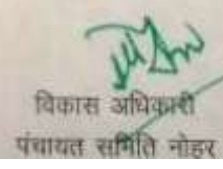 विकास अधिकारी
पंचायत समिति नोहर